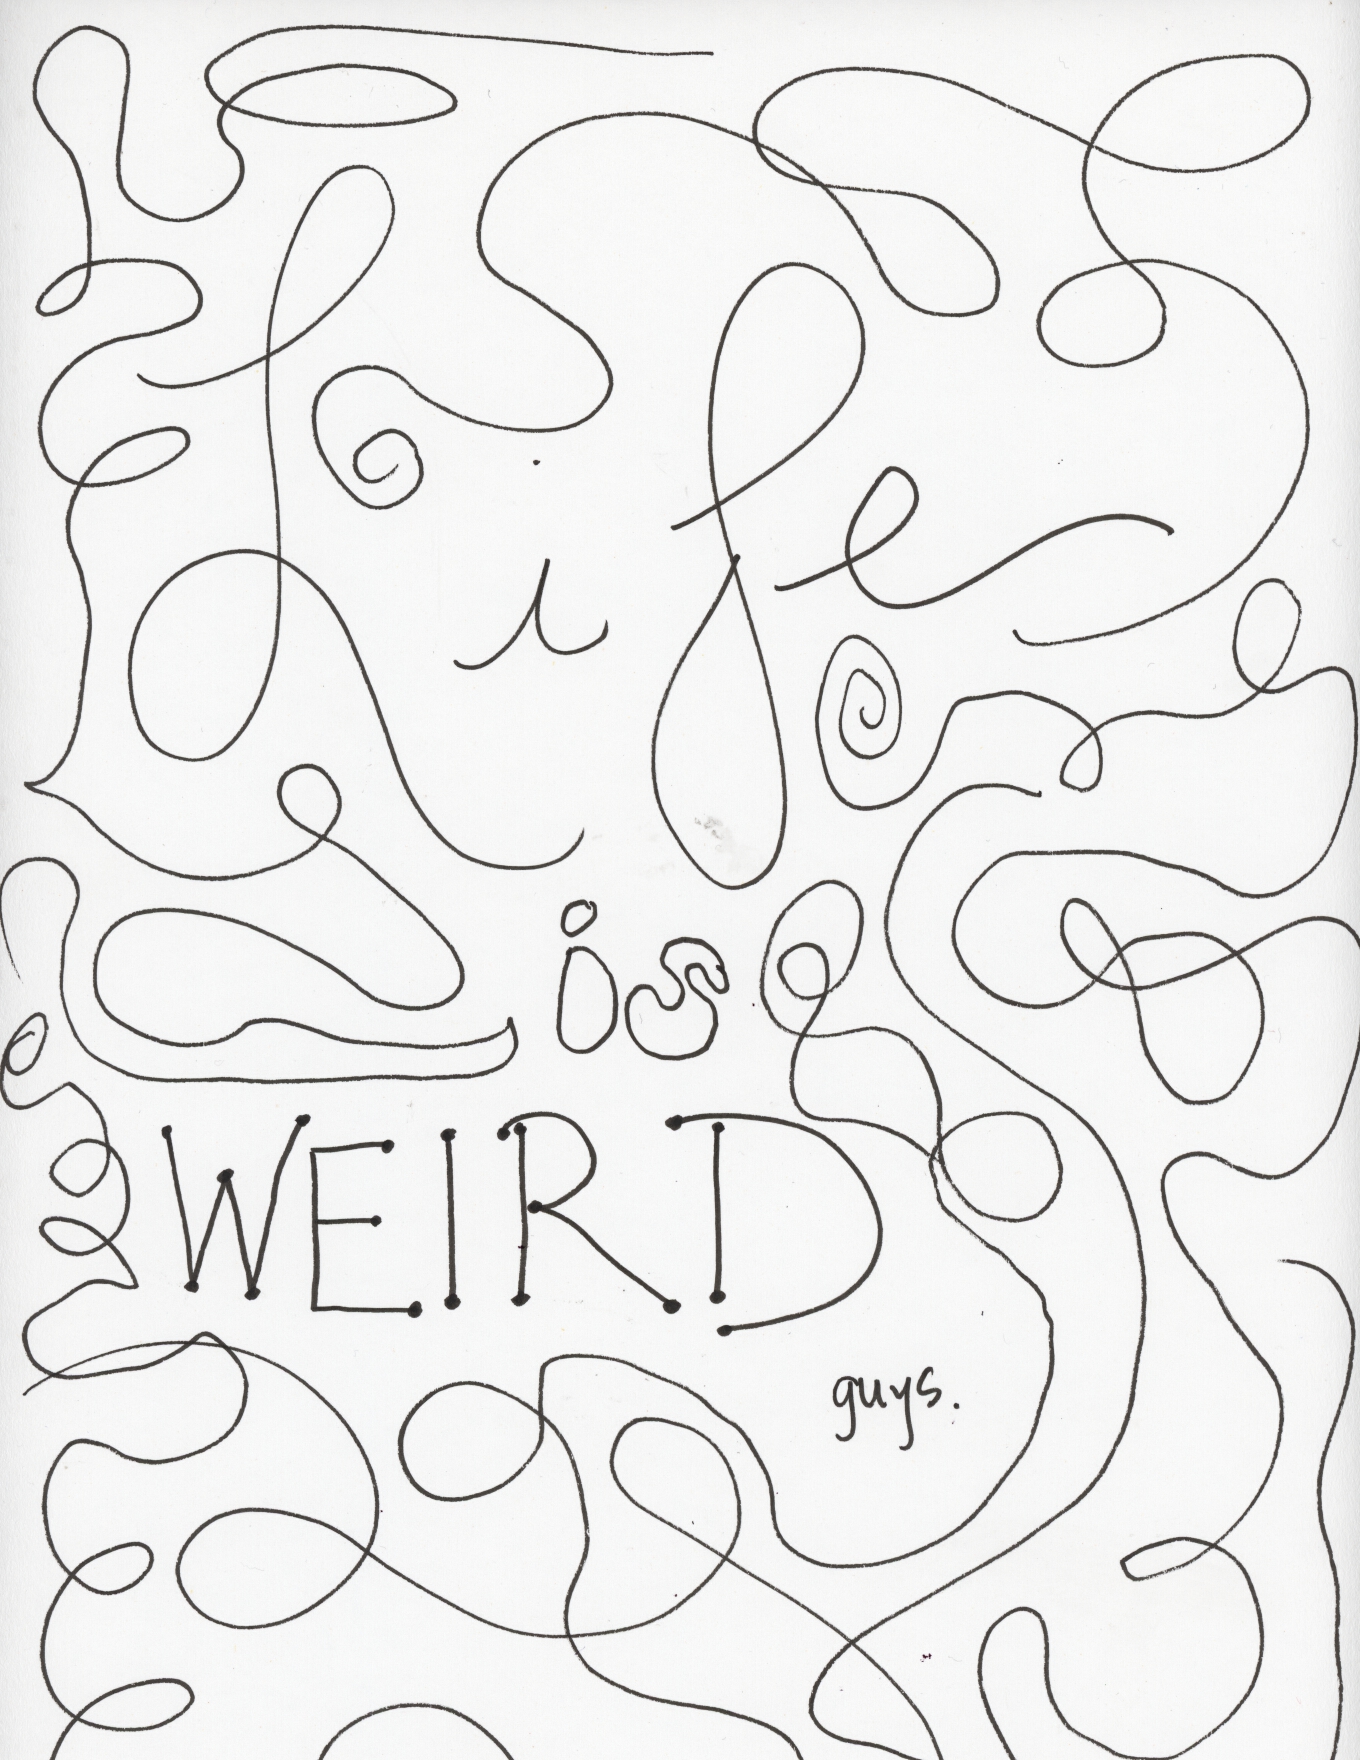 life
is
WEIRD
guys.